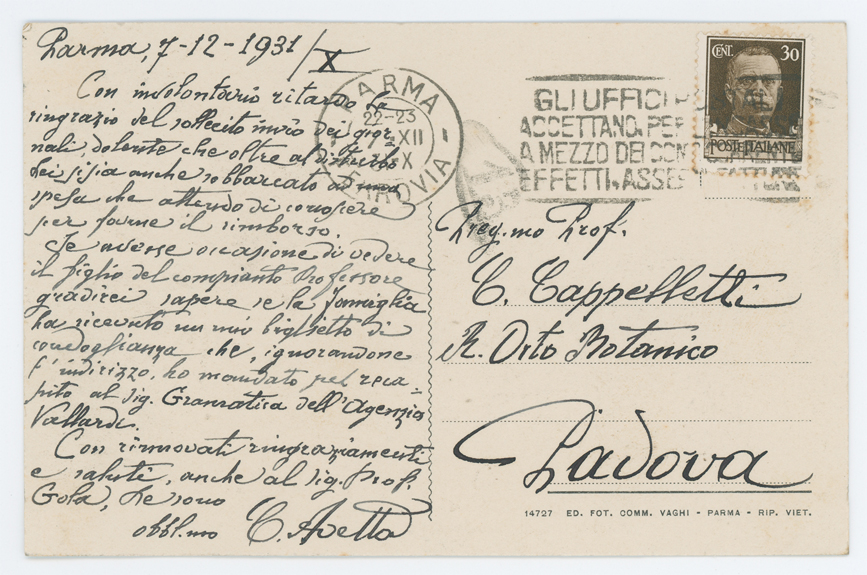 Parma, 7-12-1931/X
Con involontario ritardo La
ringrazio del sollecito invio dei gior-
nali, dolente che oltre al disturbo
Lei si sia anche sobbarcato ad una
spesa che attendo di conoscere
per farne il rimborso.
Se avesse occasione di vedere
il figlio del compianto Professore
gradirei sapere se la famiglia
ha ricevuto un mio biglietto di
condoglianza che, ignorandone
l'indirizzo, ho mandato pel reca-
pito al Sig. Gramatica dell'Agenzia
Vallardi.
Con rinnovati ringraziamenti
e saluti, anche al Sig. Prof.
Gola, Le sono
obbl.mo C. Avetta
PARMA
22-23
XII
X
FERROVIA
GLI UFFICI
ACCETTANO, PER
A MEZZO DEI CON
EFFETTI, ASSE
CENT. 30
POSTE ITALIANE
Preg.mo Prof.
C. Cappelletti
R. Orto Botanico
Padova
14727 ED. FOT. COMM. VAGHI - PARMA - RIP. VIET.